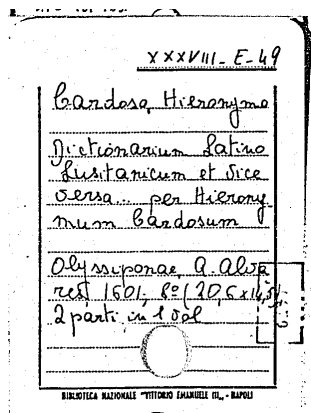 XXXVIII-E-49
Cardosa, Hieronymo
Dictionarium Latino
Lusitanicum et vice
versa.. per Hierony
mum Cardosum
Olyssiponae, A. Alva
res, 1601, 8º (20,6x14,5)
2 parti in 1 vol
BIBLIOTECA NAZIONALE "VITTORIO EMANUELE III„ - NAPOLI